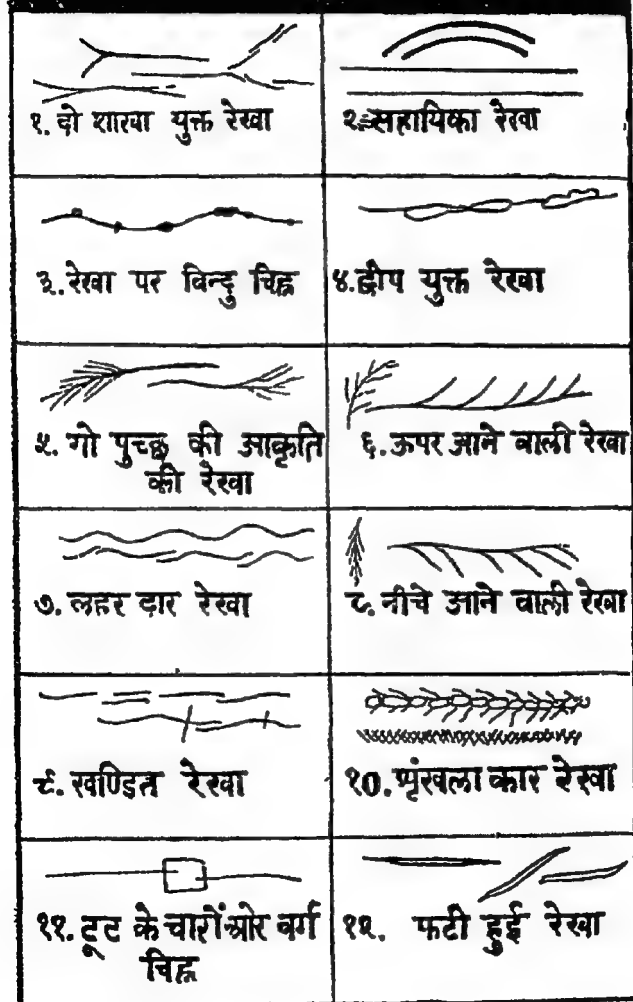 १. दो शाखा युक्त रेखा
२. सहायिका रेखा
३. रेखा पर विन्दु चिह्न
४. द्वीप युक्त रेखा
५. गो पुच्छ की आकृति
की रेखा
६. ऊपर आने वाली रेखा
७. लहर दार रेखा
८. नीचे आने वाली रेखा
९. खण्डित रेखा
१०. शृंखला कार रेखा
११. टूट के चारों ओर वर्ग
चिह्न
१२. फटी हुई रेखा